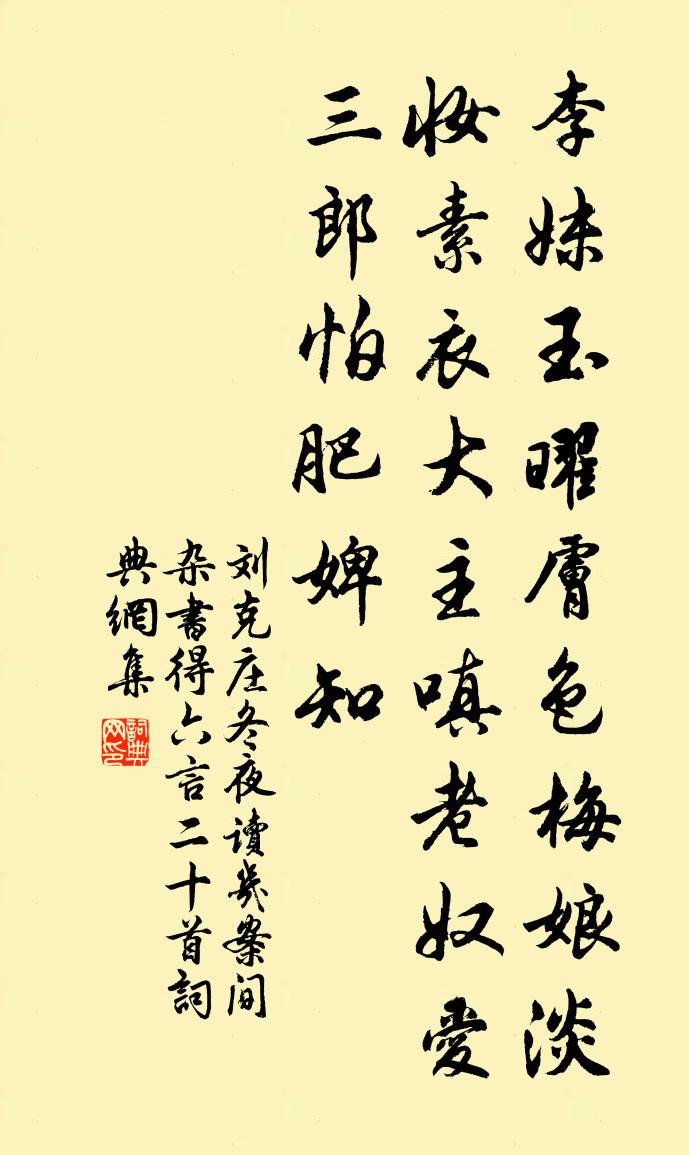 李妹玉曜膚色梅娘淡
妝素衣大主嗔老奴愛
三郎怕肥婢知
刘克庄冬夜讀几案间
杂書得六言二十首詞
典網集
詞典
网印